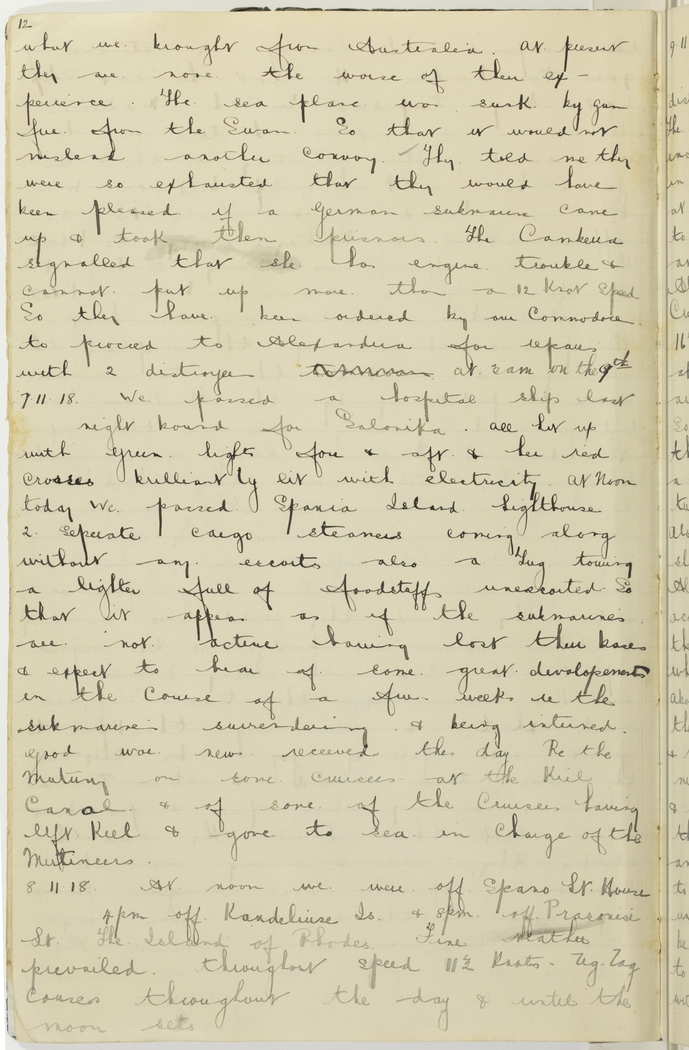 12
what we brought from Australia. At present
they are none the worse of their ex-
perience. The sea plane was sunk by gun
fire from the Swan. So that it would not
mislead another convoy. They told me they
were so exhausted that they would have
been pleased if a German submarine came
up & took them prisoners. The Camberra
signalled that she has engine trouble &
cannot put up more than a 12 Knot Speed
So they have been ordered by our Commodore
to proceed to Alexandria for repairs
with 2 distroyers at 2 am on the 9th
7.11.18. We passed a hospital ship last
night bound for Salonika. all lit up
with Green lights fore & aft & her red
Crosses brilliantly lit with electricity. At Noon
today We passed Spania Island Lighthouse
2 Seperate cargo steamers coming along
without any escorts also a Tug towing
a lighter full of foodstuffs unescorted. So
that it appears as if the submarines
are not active having lost their bases
& expect to hear of some great developements
in the Course of a few weeks re the
submarines surrendering & being interned.
good war news received this day Re the
Mutiny on some cruisers at the Kiel
Canal & of some of the Cruisers having
left Kiel & gone to sea in Charge of the
Mutineers.
8 11 18. At noon we were off Spano Lt. House
4pm off Kandeliuse Is. & 8pm. off Prasonisi
Lt. The Island of Rhodes. Fine weather
prevailed. throughout speed 11½ Knots - Zig-Zag
Courses throughout the day & until the
moon sets